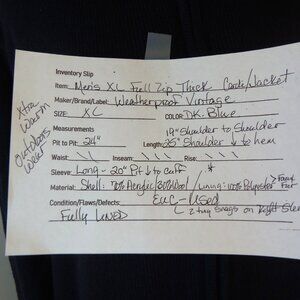 Inventory Slip
Item: Men's XL Full Zip Thick Cardi/Jacket
Maker/Brand/Label: Weatherproof Vintage
SIZE: XL COLOR: DK. Blue
Measurements 19" Shoulder to Shoulder
Pit to Pit: 24" Length: 25" Shoulder ↓ to hem
Waist: Inseam: Rise:
Sleeve: Long - 20" Pit ↓ to cuff *
Material: Shell: 70% Acrylic/30% Wool / Lining: 100% Polyester
Condition/Flaws/Defects: EUC - Used
Fully LINED 2 tiny snags on Right Slee
Xtra
Warm
Outdoors
Wear